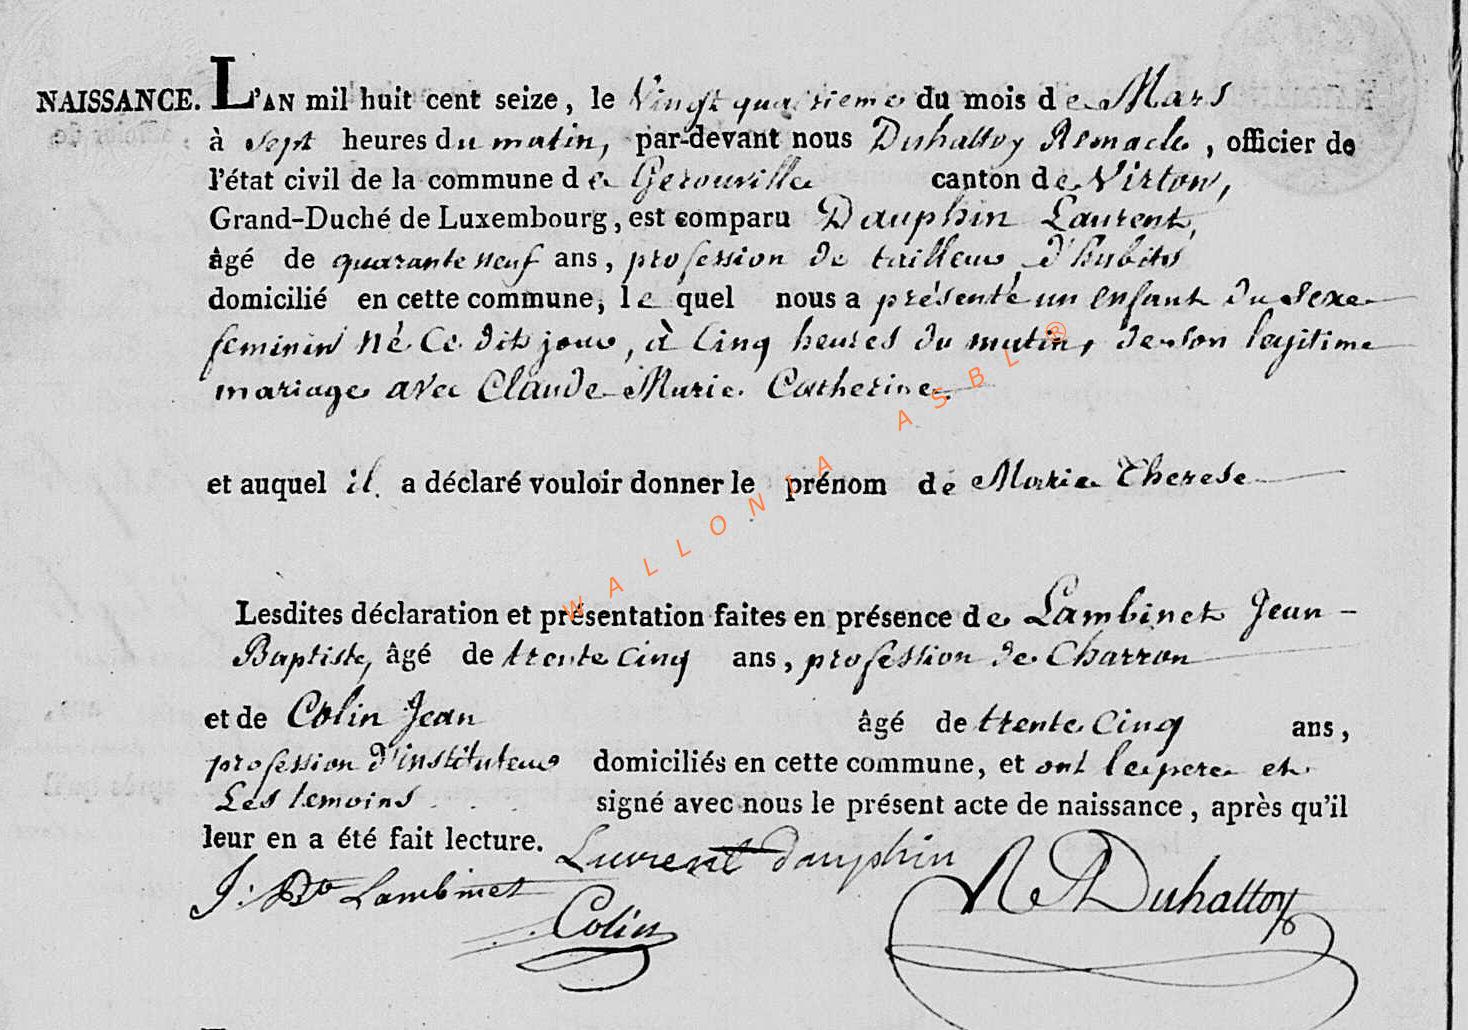 NAISSANCE. L'AN mil huit cent seize, le Vingt quatrieme du mois de Mars
à sept heures du matin, par-devant nous Duhattoy Remacle, officier de
l'état civil de la commune de Gerouville canton de Virton,
Grand-Duché de Luxembourg, est comparu Dauphin Laurent,
âgé de quarante neuf ans, profession de tailleur d'habits
domicilié en cette commune, le quel nous a présenté un enfant du sexe
feminin né ce dit jour, à Cinq heures du matin, de son legitime
mariage avec Claude Marie Catherine.
et auquel il a déclaré vouloir donner le prénom de Marie Therese
Lesdites déclaration et présentation faites en présence de Lambinet Jean-
Baptiste, âgé de trente cinq ans, profession de Charron
et de Colin Jean âgé de trente Cinq ans,
profession d'instituteur domiciliés en cette commune, et ont le pere et
Les temoins signé avec nous le présent acte de naissance, après qu'il
leur en a été fait lecture.
Laurent dauphin
J: Bte Lambinet
Colin
R Duhattoy
WALLONIA ASBL ®